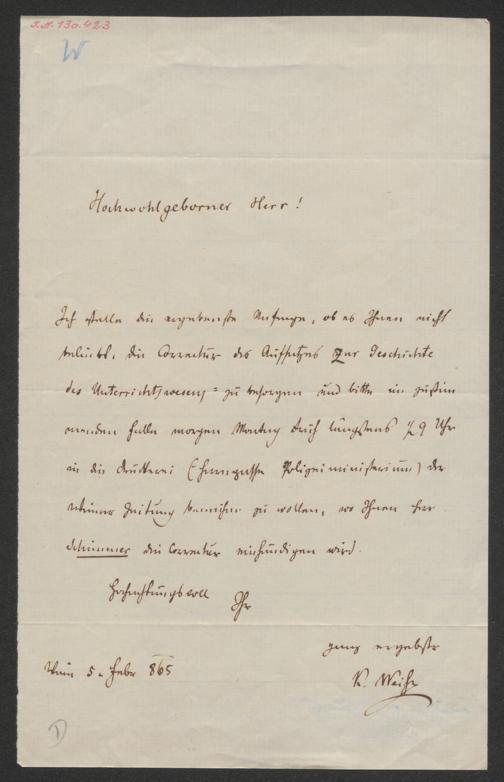 I.N. 130.423
W
Hochwohlgeborner Herr!
Ich stelle die ergebenste Anfrage, ob es Ihnen nicht
beliebt, die Correctur des Aufsatzes "Zur Geschichte
des Unterrichtswesens" zu besorgen und bitte im zustim
menden Falle morgen Montag Früh längstens ½9 Uhr
in die Druckerei (Polizeiministerium) der
Wiener Zeitung bemühen zu wollen, wo Ihnen Herr
Schimmer die Correctur einhändigen wird.
Hochachtungsvoll
Ihr
ganz ergebster
Wien 5. Febr 865